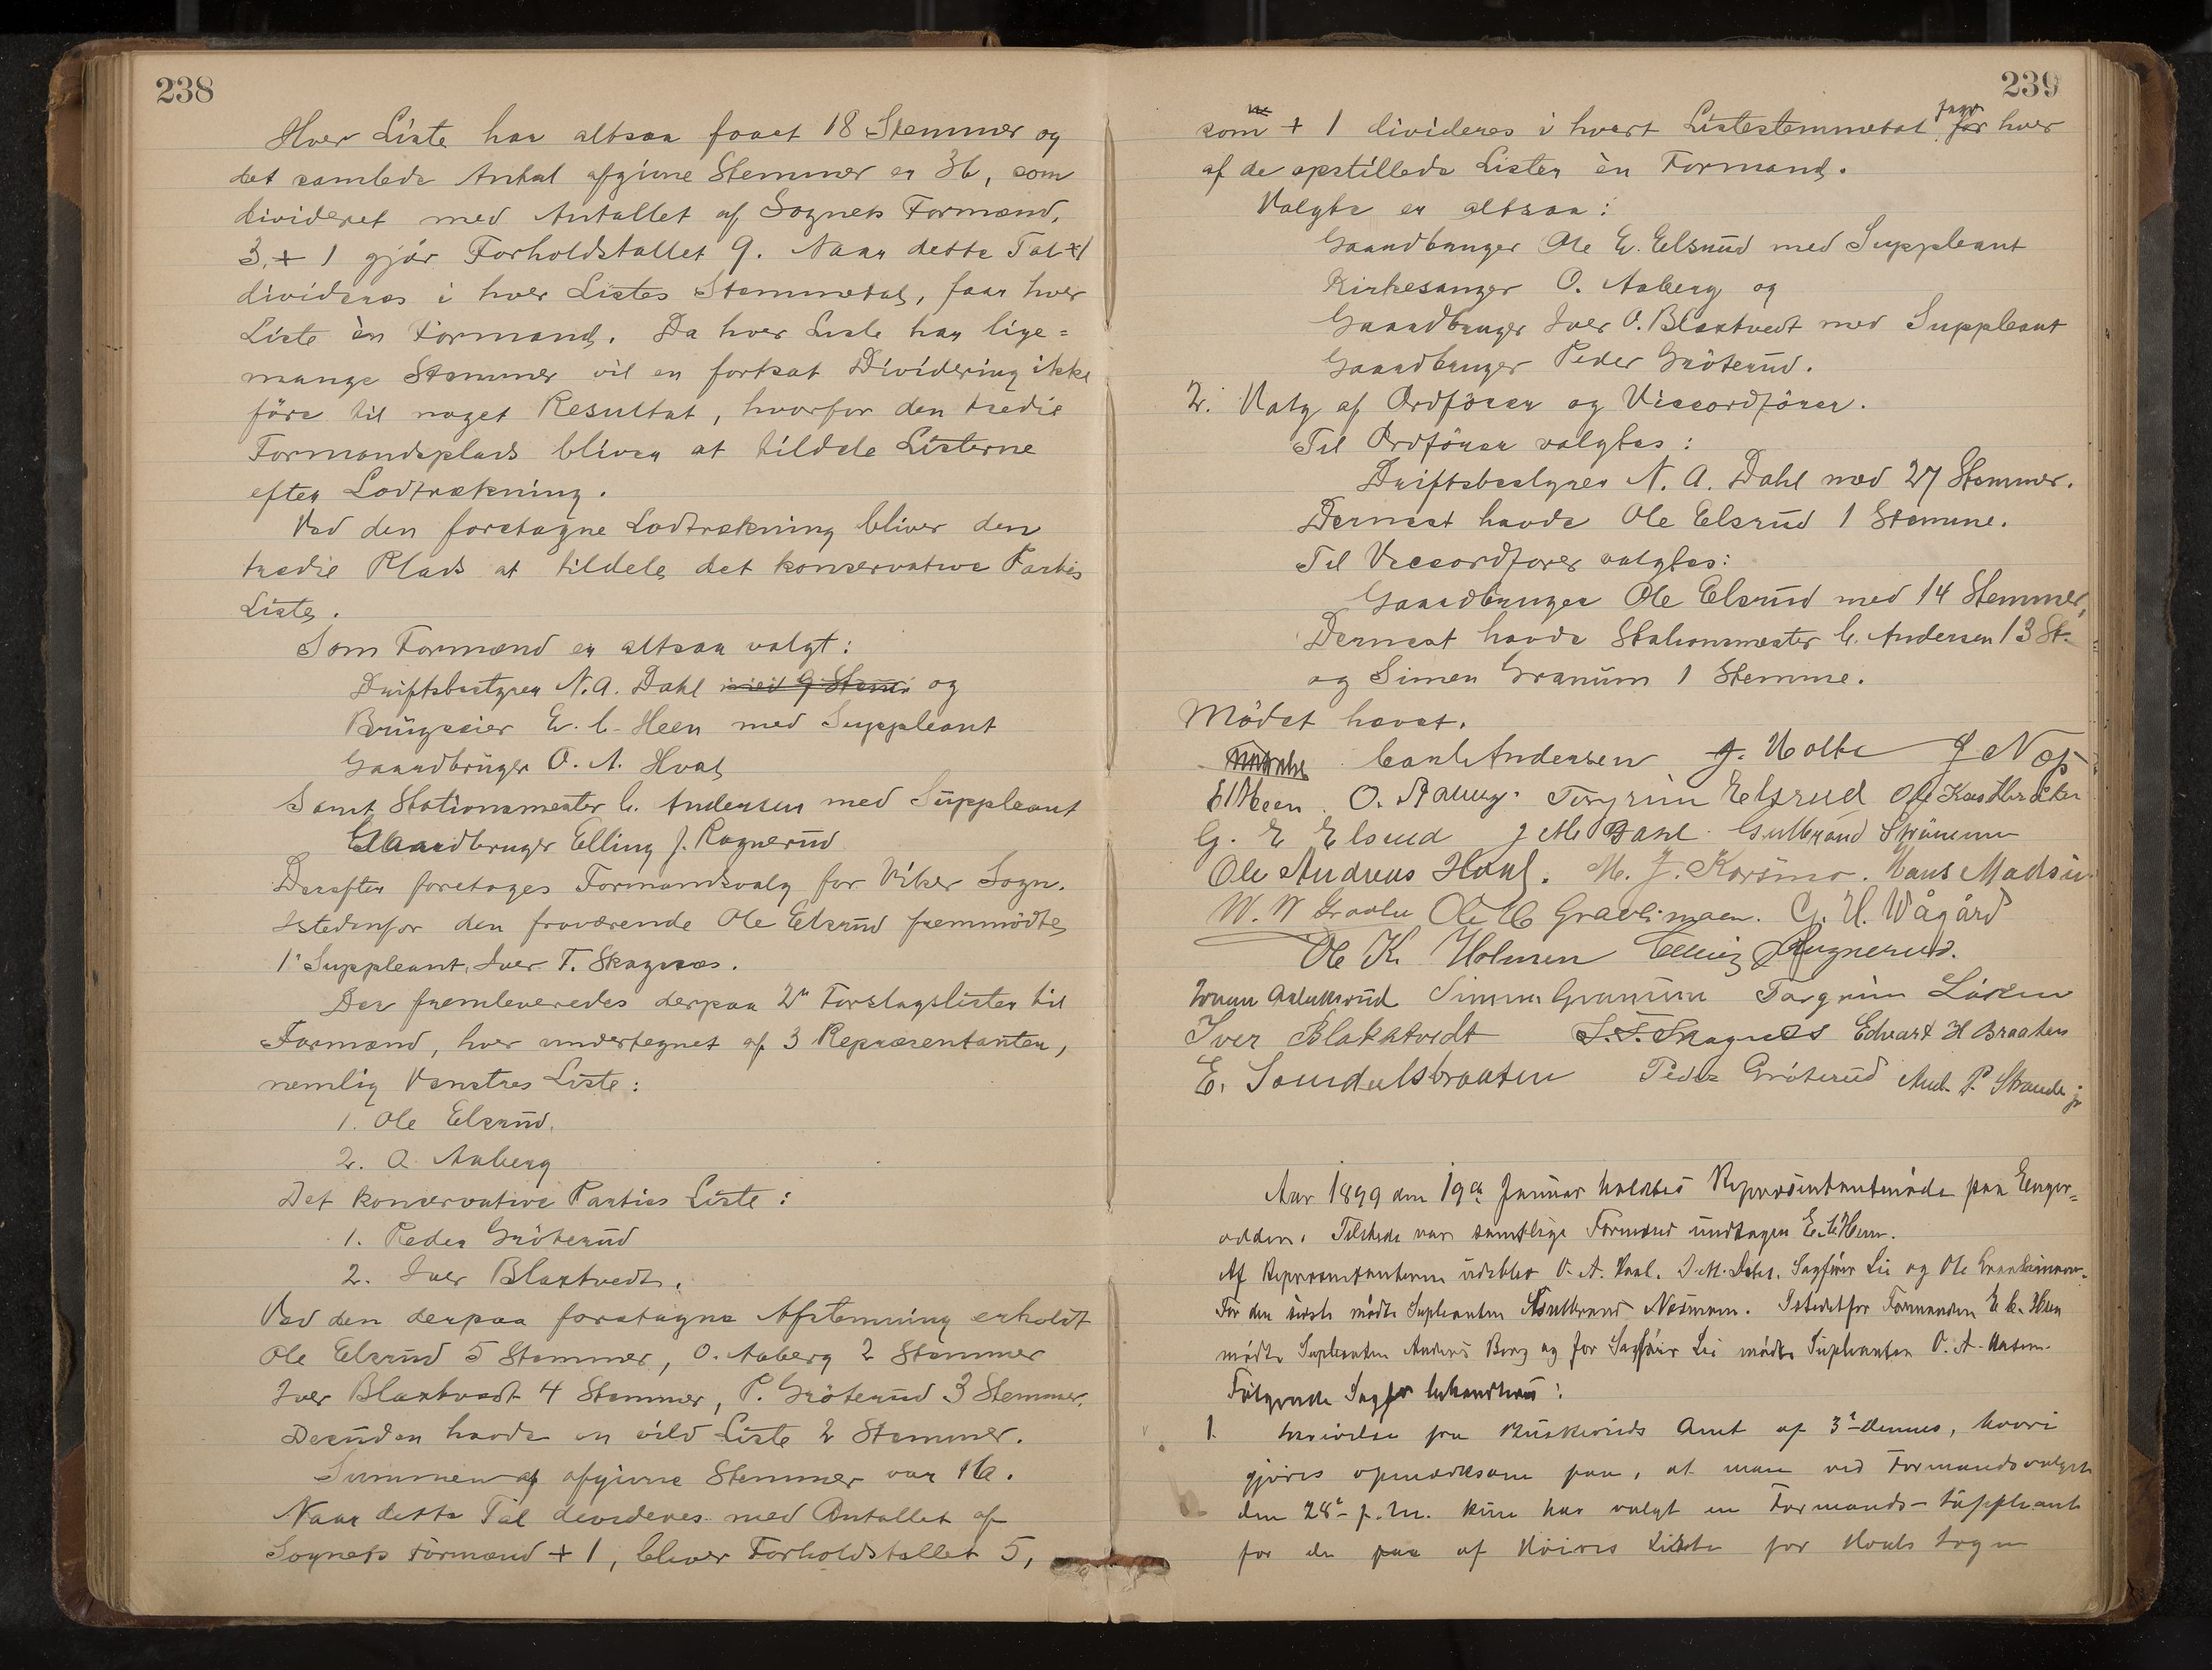 238
Hver Liste har altsaa faaet 18 Stemmer og
det samlede Antal afgivne Stemmer er 36, som
divideret med Antallet af Sognets Formænd,
3, + 1 gjør Forholdstallet 9. Naar dette Tal + 1
divideres i hver Listes Stemmetal, faar hver
Liste èn Formand. Da hver Liste har lige=
mange Stemmer vil en fortsat Dividering ikke
føre til noget Resultat, hvorfor den tredie
Formandsplads bliver at tildele Listerne
efter Lodtrækning.
Ved den foretagne Lodtrækning bliver den
tredie Plads at tildele det konservative Partis
Liste.
Som Formænd er altsaa valgt:
Driftsbestyrer N. A. Dahl med 9 Stem og
Brugseier E. C. Heen med Suppleant
Gaardbruger O. A. Hval
samt Stationsmester C. Andersen med Suppleant
Gaardbruger Elling J. Rognerud
Derefter foretages Formandsvalg for Viker Sogn.
Istedenfor den fraværende Ole Elsrud fremmødte
1ste Suppleant, Iver T. Skagnæs.
Der fremleveredes derpaa 2de Forslagslister til
Formænd, hver undertegnet af 3 Repræsentanter,
nemlig Venstres Liste:
1. Ole Elsrud.
2. O. Aaberg
Det konservative Parties Liste:
1. Peder Grøterud
2. Iver Blaxtvedt.
Ved den derpaa foretagne Afstemning erholdt
Ole Elsrud 5 Stemmer, O. Aaberg 2 Stemmer
Iver Blaxtvedt 4 Stemmer, P. Grøterud 3 Stemmer.
Desuden havde en vild Liste 2 Stemmer.
Summen af afgivne Stemmer var 16.
Naar dette Tal devideres med Antallet af
Sognets Formænd + 1, bliver Forholdstallet 5,
239
som + 1 divideres i hvert Listestemmetal faar hver
af de opstillede Lister èn Formand.
Valgte er altsaa:
Gaardbruger Ole E. Elsrud med Suppleant
Kirkesanger O. Aaberg og
Gaardbruger Iver O. Blaxtvedt med Suppleant
Gaardbruger Peder Grøterud.
2. Valg af Ordfører og Viceordfører.
Til Ordfører valgtes:
Driftsbestyrer N. A. Dahl med 27 Stemmer.
Dernæst havde Ole Elsrud 1 Stemme.
Til Viceordfører valgtes:
Gaardbruger Ole Elsrud med 14 Stemmer,
Dernæst havde Stationsmester C. Andersen 13 St.
og Simen Granum 1 Stemme.
Mødet hævet.
Carl Andersen J. Holte
E C Heen. O. Aaberg. Torgrim Elsrud Ole
G. E Elsrud Dahl Gulbrand
Ole Andreas Hval. M. J. Korsmo. Hans Madsen
W. W Ole Gravlimoen. G. H. Wågård
Ole K. Holmen Elling J Rognerud.
Simen Granum Torgrim Liken
Iver Blakstvedt I. T. Skagnæs Edvart H Braaten
E. Somdalsbraaten Peder Grøterud And. P. Strande jr
Aar 1899 den 19de Januar holdtes Repræsentantmøde paa Enger=
odden. Tilstede var samtlige Formænd undtagen E. C. Heen.
Af Repræsentanterne udeblev O. A. Hval. Sagfører Lie og Ole Gravlimoen.
For den sidste mødte Supleanten Gulbrand Næsmoen. Istedetfor Formanden E. C. Heen
mødte Supleanten Anders Berg og for Sagfører Lie mødte Supleanten O. A.
Følgende Sager behandledes:
1. Skrivelse fra Buskeruds Amt af 3die dennes, hvori
gjøres opmærksom paa, at man ved Formandsvalget
den 28de f. M. kun har valgt en Formands-Suppleant
for de paa af Høires Liste for Hovls Sogn